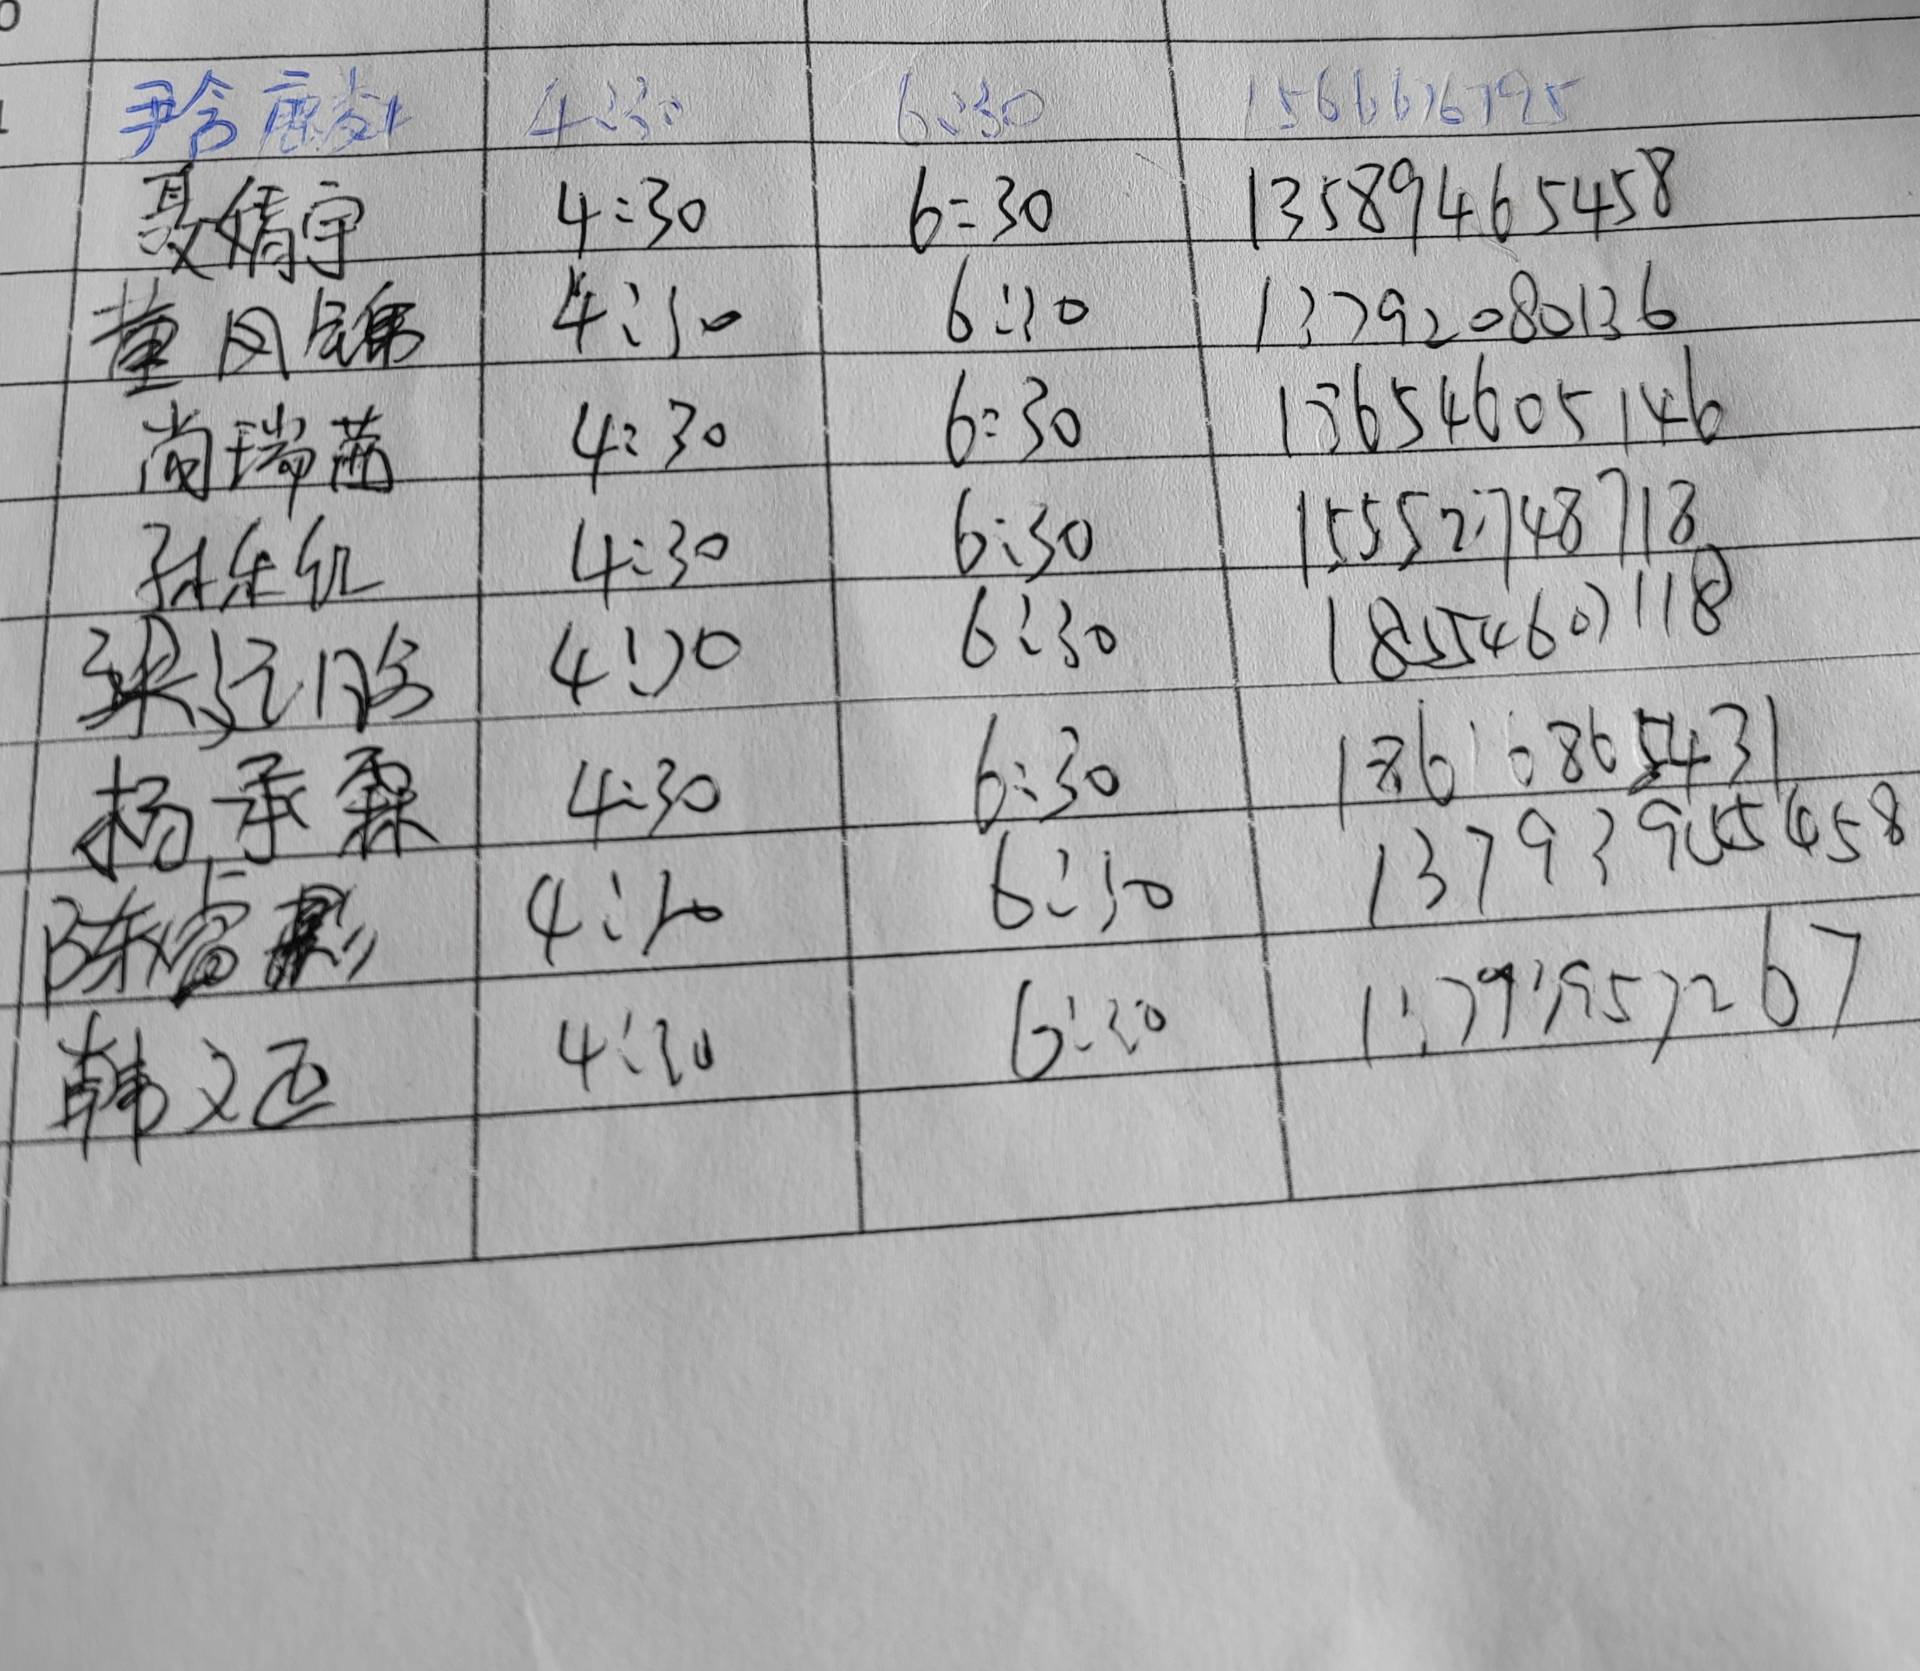 尹含 4:30 6:30 1566676795
聂婧宇 4:30 6:30 13589465458
董 4:30 6:30 13792080136
尚瑞茜 4:30 6:30 13654605146
孙乐 4:30 6:30 15552748718
梁 4:30 6:30 18554607118
杨承霖 4:30 6:30 18616865431
陈睿影 4:30 6:30
韩文 4:30 6:30 13793957267